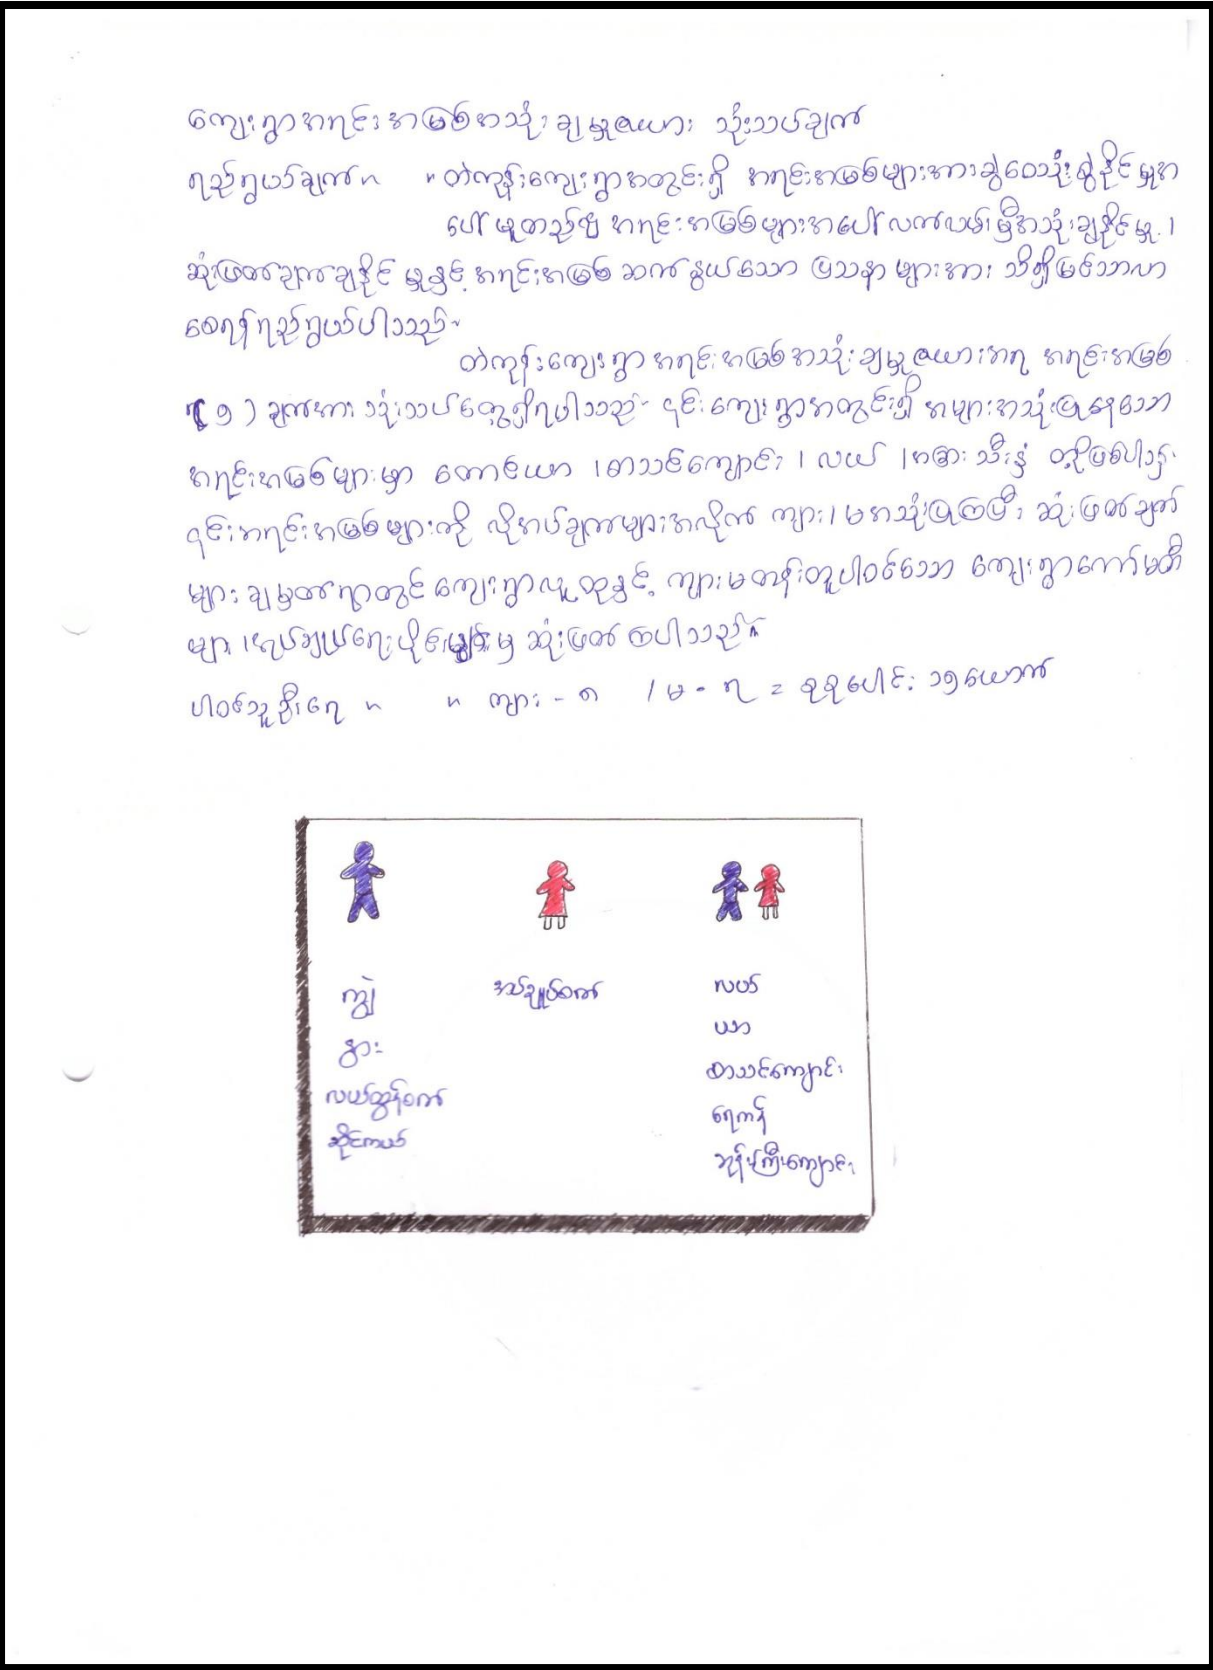 ကျေးရွာအရင်းအမြစ်အသုံးချမှုဇယား သုံးသပ်ချက်
ရည်ရွယ်ချက်။ ။တဲကုန်းကျေးရွာအတွင်းရှိ အရင်းအမြစ်များအားခွဲဝေသုံးစွဲနိုင်မှုအ
ပေါ်မူတည်၍ အရင်းအမြစ်များအပေါ် လက်လှမ်းမှီအသုံးချနိုင်မှု၊
ဆုံးဖြတ်ချက်ချနိုင်မှုနှင့် အရင်းအမြစ် ဆက်နွယ်သော ပြသနာများအား သိရှိမြင်သာလာ
စေရန်ရည်ရွယ်ပါသည်။
တဲကုန်းကျေးရွာ အရင်းအမြစ်အသုံးချမှုဇယားအရ အရင်းအမြစ်
ချက်အား သုံးသပ်တွေ့ရှိရပါသည်။ ၎င်းကျေးရွာအတွင်းရှိ အများအသုံးပြုနေသော
အရင်းအမြစ်များမှာ တောင်ယာ ၊စာသင်ကျောင်း ၊ လယ် ၊အခြားသီးနှံ တို့ဖြစ်ပါသည်။
၎င်းအရင်းအမြစ်များကို လိုအပ်ချက်များအလိုက် ကျား/မအသုံးပြုကြပြီး ဆုံးဖြတ်ချက်
များ ချမှတ်ရာတွင် ကျေးရွာလူထုနှင့် ကျားမတန်းတူပါဝင်သော ကျေးရွာကော်မတီ
များ ၊အုပ်ချုပ်ရေးပိုင်းများမှ ဆုံးဖြတ်ကြပါသည်။
ပါဝင်သူဦးရေ ။ ။ ကျား - ၈ / မ - ၇ = စုစုပေါင်း ၁၅ယောက်
ကျွဲ အပ်ချုပ်စက် လယ်
နွား ယာ
လယ်ထွန်စက် စာသင်ကျောင်း
ဆိုင်ကယ် ရေကန်
ဘုန်းကြီးကျောင်း